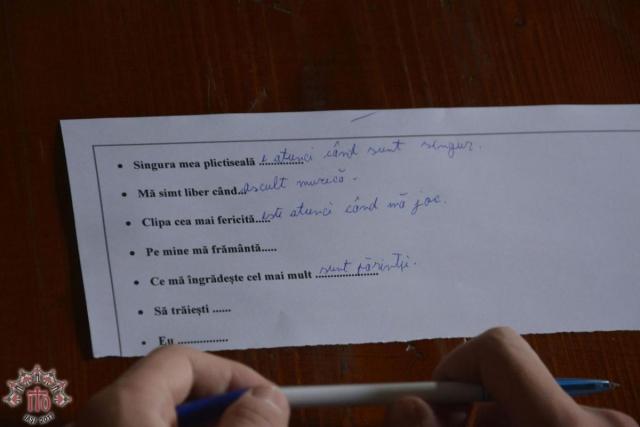 • Singura mea plictiseală e atunci când sunt singur.
• Mă simt liber când... ascult muzică.
• Clipa cea mai fericită..... este atunci când mă joc.
• Pe mine mă frământă.....
• Ce mă îngrădește cel mai mult ................... sunt părinții.
• Să trăiești ......
• Eu ................
ITO
IAȘI 2017